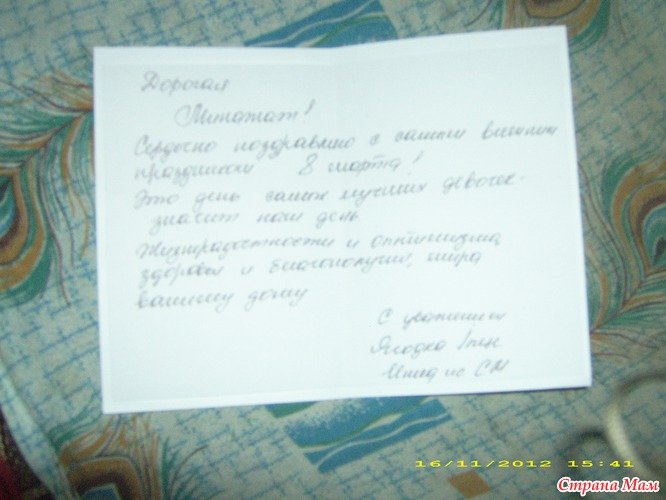 Дорогая
Минажат!
Сердечно поздравляю с самым
праздником 8 марта!
Это день самых лучших девочек-
значит наш день.
Жизнерадостности и оптимизма,
здоровья и благополучия, мира
вашему дому
С уважением
Ягодка
СМ
16/11/2012 15:41
Страна Мам